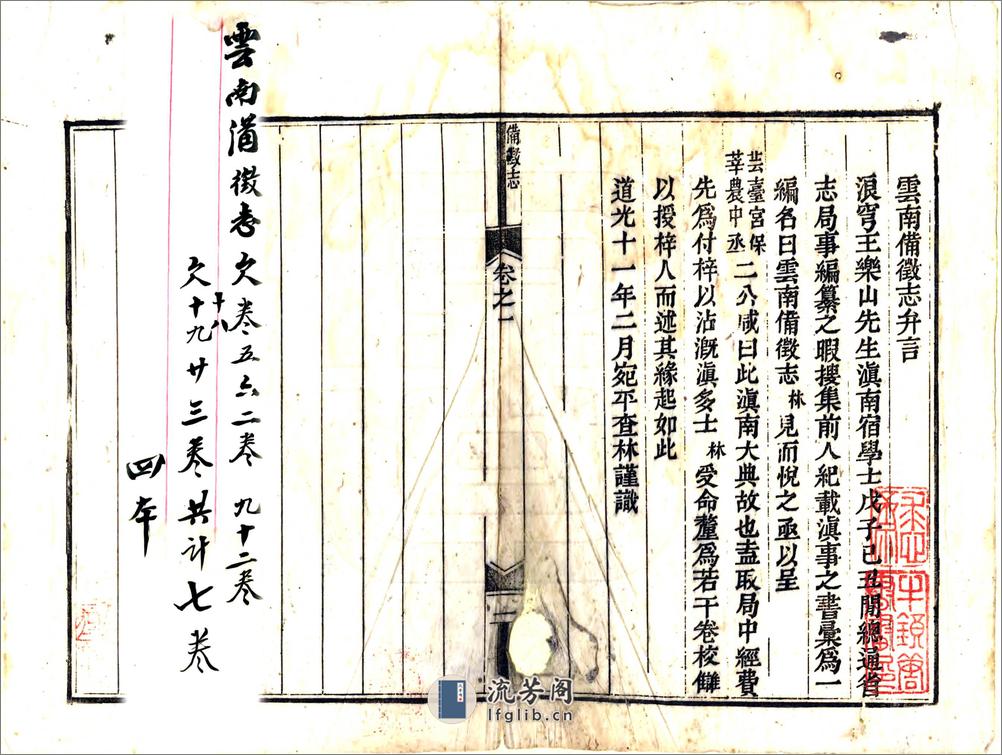 雲南備徵志弁言
浪穹王樂山先生滇南宿學士戊子己丑閒總通省
志局事編纂之暇摟集前人紀載滇事之書彙為一
編名曰雲南備徵志林見而悅之亟以呈
芸臺宮保
莘農中丞
二公咸曰此滇南大典故也盍取局中經費
先為付梓以沾溉滇多士林受命釐為若干卷校讎
以授梓人而述其緣起如此
道光十一年二月宛平查林謹識
備徵志
卷之一
一
雲南備徵志欠卷五六二卷 九十二卷
十八
欠十九廿三卷共計七卷
四本
流芳阁
lfglib.cn